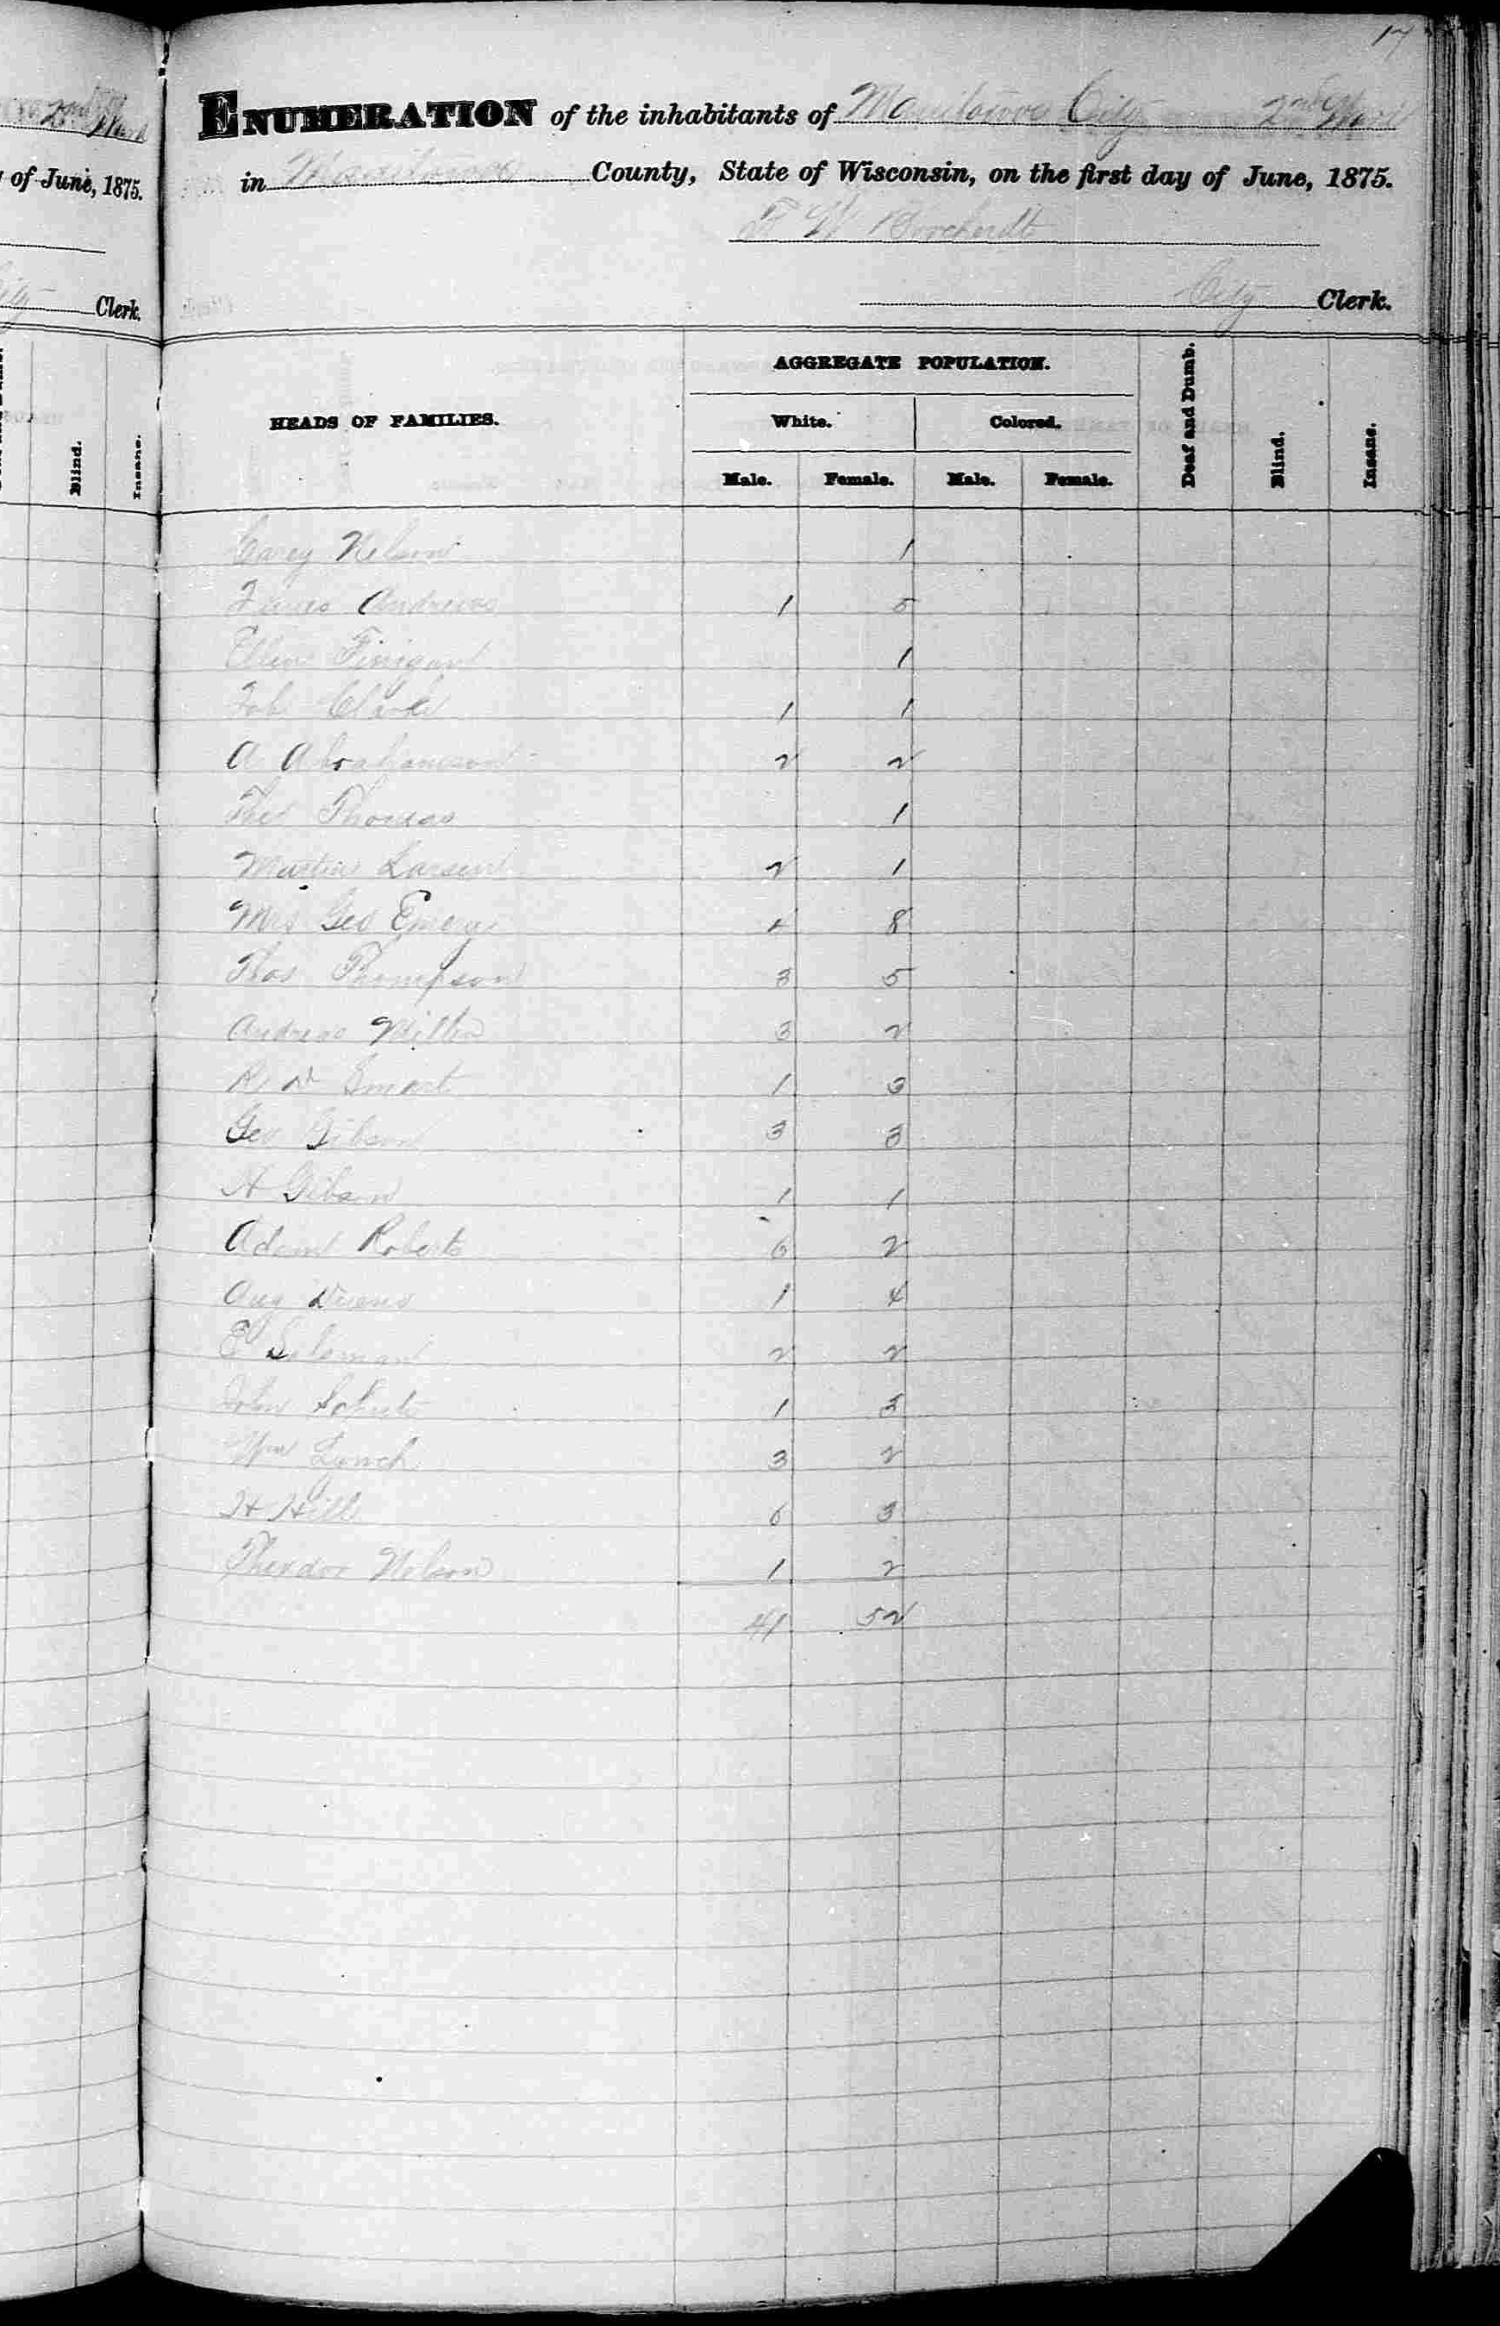 17
2nd Ward
ENUMERATION of the inhabitants of Manitowoc City 2nd Ward
of June, 1875.
in Manitowoc County, State of Wisconsin, on the first day of June, 1875.
F W Borcherdt
City Clerk.
Clerk.
AGGREGATE POPULATION.
HEADS OF FAMILIES.
White.
Colored.
Deaf and Dumb.
Blind.
Insane.
Blind.
Insane.
Male. Female. Male. Female.
Nelson 1
Andrews 1 5
Ellen Finigan 1
Clark 1 1
A Abrahamson 2 2
Thomas 1
Martin Larsen 2 1
Mrs Geo Emery 4 8
Thos Thompson 3 5
Andreas 3 2
Smart 1 3
Geo Gibson 3 3
A Gibson 1 1
Adam Roberts 6 2
Aug 1 4
E Saloman 2 2
John 1 3
Wm Lynch 3 2
H Hill 6 3
Theodor Nelson 1 2
41 52